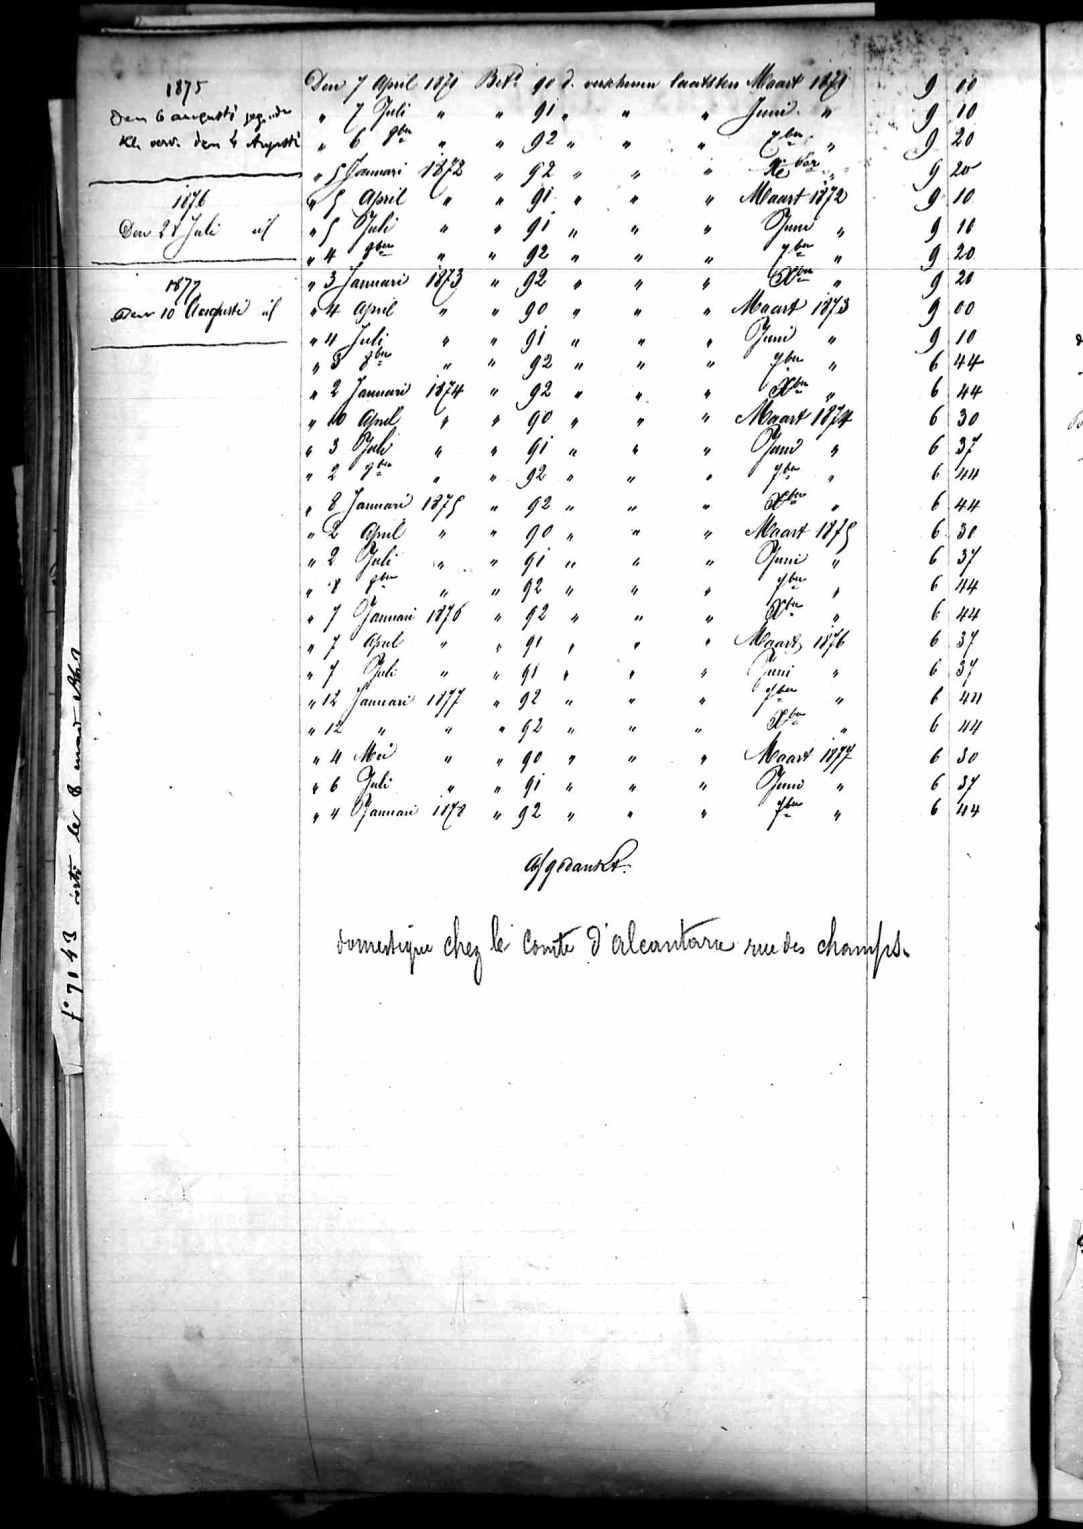 1875
Den 6 augusti gegeven
kl. verv. den 4 Augusti
1876
Den 28 Juli id
1877
Den 10 Augusti id
Den 7 April 1871 Bet.d 90 d. verschenen laatsten Maart 1871 9 00
" 7 Juli " " 91 " " " Juni " 9 10
" 6 8ber " " 92 " " " 7ber " 9 20
" 5 Januari 1872 " 92 " " " Xber " 9 20
" 5 April " " 91 " " " Maart 1872 9 10
" 5 Juli " " 91 " " " Juni " 9 10
" 4 8ber " " 92 " " " 7ber " 9 20
" 3 Januari 1873 " 92 " " " Xber " 9 20
" 4 April " " 90 " " " Maart 1873 9 00
" 4 Juli " " 91 " " " Juni " 9 10
" 3 8ber " " 92 " " " 7ber " 6 44
" 2 Januari 1874 " 92 " " " Xber " 6 44
" 10 April " " 90 " " " Maart 1874 6 30
" 3 Juli " " 91 " " " Juni " 6 37
" 2 8ber " " 92 " " " 7ber " 6 44
" 8 Januari 1875 " 92 " " " Xber " 6 44
" 2 April " " 90 " " " Maart 1875 6 30
" 2 Juli " " 91 " " " Juni " 6 37
" 8 8ber " " 92 " " " 7ber " 6 44
" 7 Januari 1876 " 92 " " " Xber " 6 44
" 7 April " " 91 " " " Maart 1876 6 37
" 7 Juli " " 91 " " " Juni " 6 37
" 12 Januari 1877 " 92 " " " 7ber " 6 44
" 12 " " " 92 " " " Xber " 6 44
" 4 Mei " " 90 " " " Maart 1877 6 30
" 6 Juli " " 91 " " " Juni " 6 37
" 4 Januari 1878 " 92 " " " 7ber " 6 44
Afgedankt.
domestique chez le Comte d'alcantara rue des champs.
f° 7143 le 8